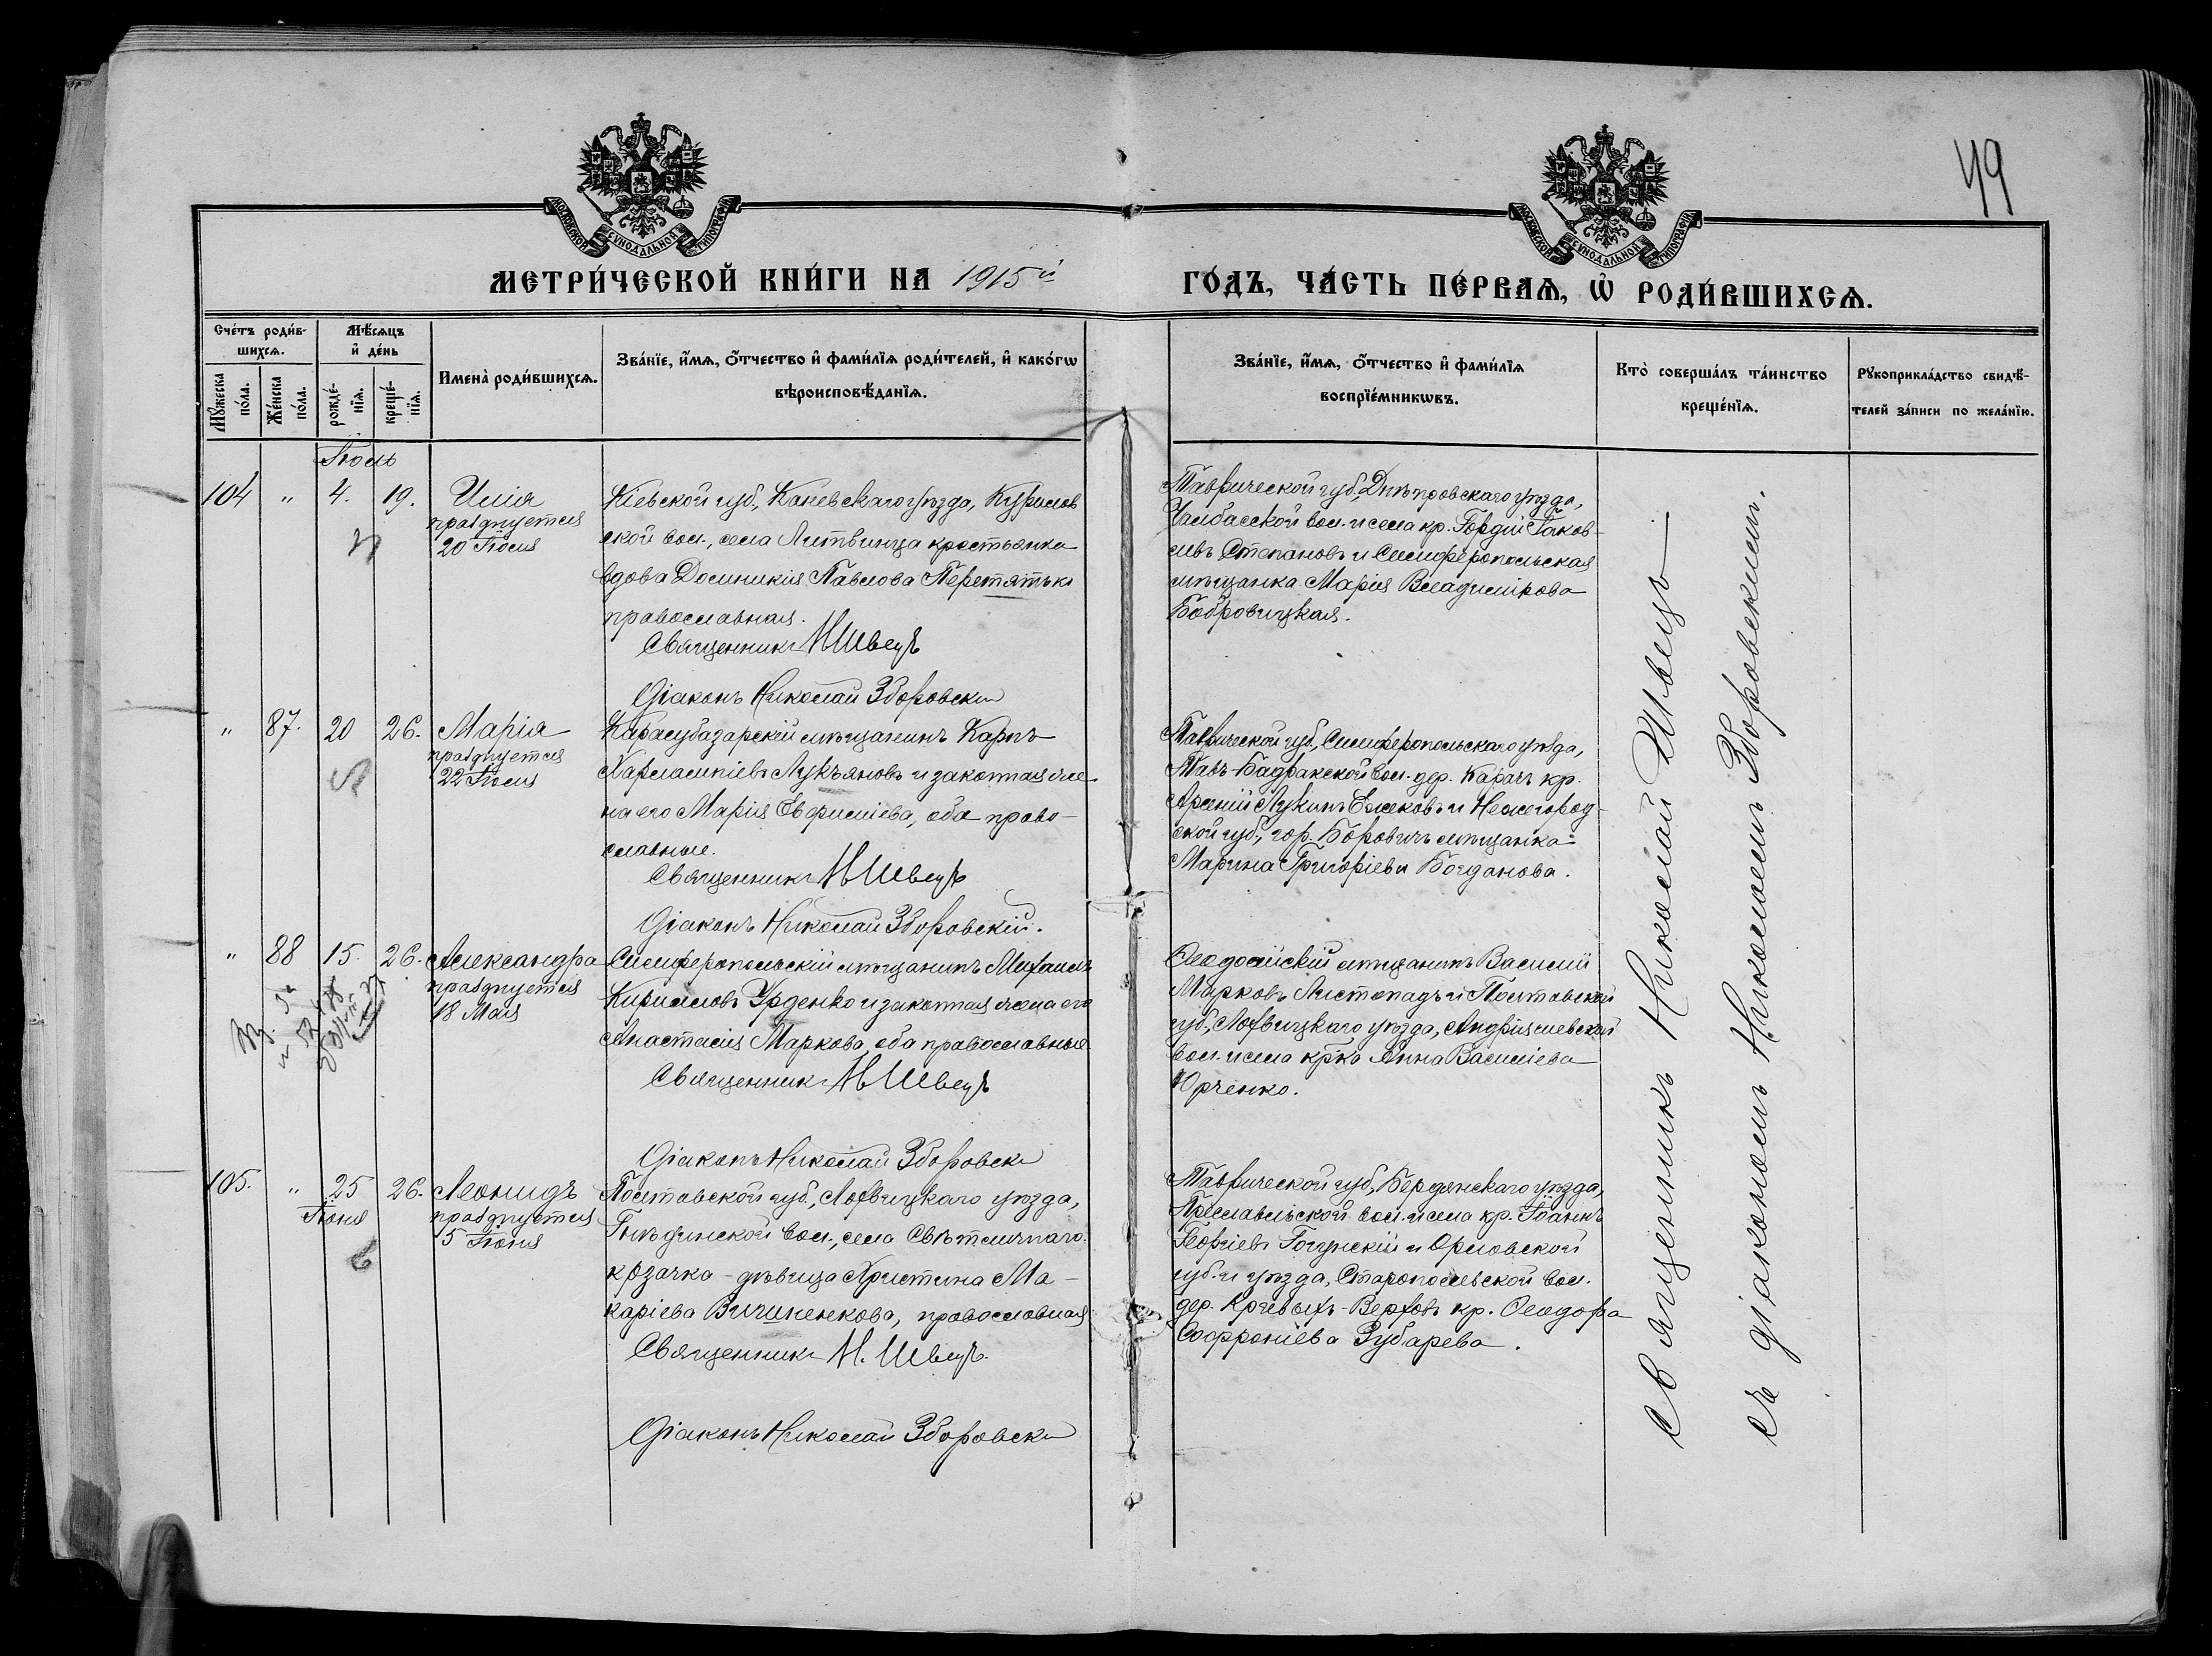 49
МОСКОВСКОЙ СѴНОДАЛЬНОЙ ТИПОГРАФІИ
МОСКОВСКОЙ СѴНОДАЛЬНОЙ ТИПОГРАФІИ
МЕТРИ́ЧЕСКОЙ КНИ́ГИ НА 1915й ГО́ДЪ, ЧА́СТЬ ПЕ́РВАѦ, Ѡ҆ РОДИ́ВШИХСѦ.
Сче́тъ роди́в-
шихсѧ.
Мꙋ́жеска
по́ла.
Же́нска
по́ла.
Мѣ́сѧцъ
и҆ де́нь
рожде́-
нїѧ.
креще́-
нїѧ.
Имена̀ роди́вшихсѧ.
Зва́нїе, и҆́мѧ, ѻ҆́тчество и҆ фами́лїѧ роди́телей, и҆ како́гѡ
вѣроисповѣ́данїѧ.
Зва́нїе, и҆́мѧ, ѻ҆́тчество и҆ фами́лїѧ
воспрїе́мникѡвъ.
Кто̀ соверша́лъ та́инство
креще́нїѧ.
Рꙋкоприкла́дство свидѣ́-
телей за́писи по жела́нїю.
Іюль
104 " 4. 19. Илія
празднуется
20 Іюля
Кіевской губ., Каневскаго уѣзда, Курилов
ской вол., села Литвинца крестьянка
вдова Домникія Павлова Перетятько
православная.
Священникъ Н Швецъ
Діаконъ Николай Зборовскій
Таврической губ., Днѣпровскаго уѣзда,
Чалбасской вол. и села кр. Гордій Іаков-
левъ Степановъ и Симферопольская
мѣщанка Марія Владимірова
Бобровицкая.
" 87. 20 26. Марія
празднуется
22 Іюля
Карасубазарскій мѣщанинъ Карпъ
Харлампіевъ Лукъяновъ и законная же-
на его Марія Евфиміева, оба право-
славные.
Священникъ Н Швецъ
Діаконъ Николай Зборовскій.
Таврической губ., Симферопольскаго уѣзда,
Тавъ-Бадракской вол. дер. Карачъ кр.
Арсеній Лукинъ Ежековъ и Нежегород-
ской губ., гор. Боровичъ мѣщанка
Марина Григоріева Богданова.
" 88 15. 26. Александра
празднуется
18 Мая
Симферопольскій мѣщанинъ Михаилъ
Кирилловъ Урденко и законная жена его
Анастасія Маркова, оба православные
Священникъ Н Швецъ
Діаконъ Николай Зборовскій
Ѳеодосійскій мѣщанинъ Василій
Марковъ Листопадъ и Полтавской
губ., Лохвицкаго уѣзда, Андріяшевской
вол. и села кр-ка Анна Василіева
Юрченко.
105. " 25 26. Леонидъ
Іюня празднуется
5 Іюня
Полтавской губ., Лохвицкаго уѣзда,
Гнѣдинской вол., села Свѣтличнаго
козачка - дѣвица Христина Ма-
каріева Вичиненкова, православная
Священникъ Н. Швецъ.
Діаконъ Николай Зборовскій
Таврической губ., Бердянскаго уѣзда,
Преславльской вол. и села кр. Іоаннъ
Георгіевъ Гоцунскій и Орловской
губ. и уѣзда, Старопольской вол.
дер. Кривыхъ-Верховъ кр. Ѳеодора
Софроніева Зубарева.
Священникъ Николай Швецъ
съ діакономъ Николаемъ Зборовскимъ.